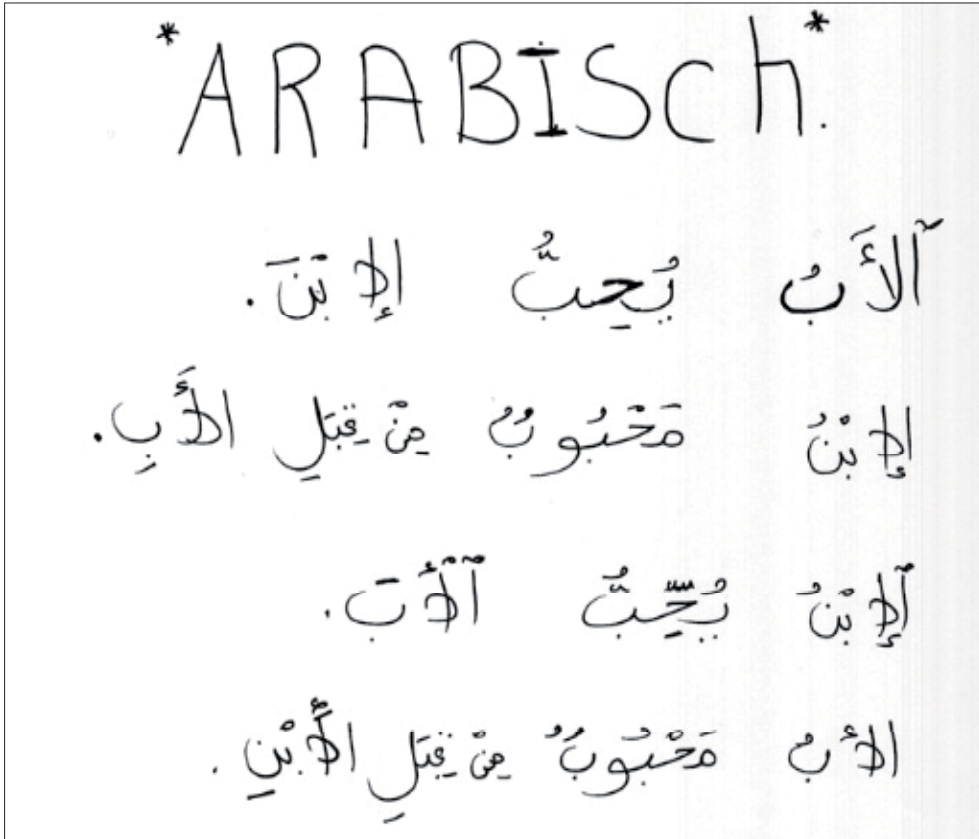 *ARABISCh*.
اَلأَبُ يُحِبُّ الإِبْنَ.
الإِبْنُ مَحْبُوبٌ مِنْ قِبَلِ الأَبِ.
اَلإِبْنُ يُحِّبُّ اَلْأَبَ.
الأَبُ مَحْبُوبٌ مِنْ قِبَلِ الأَبْنِ.